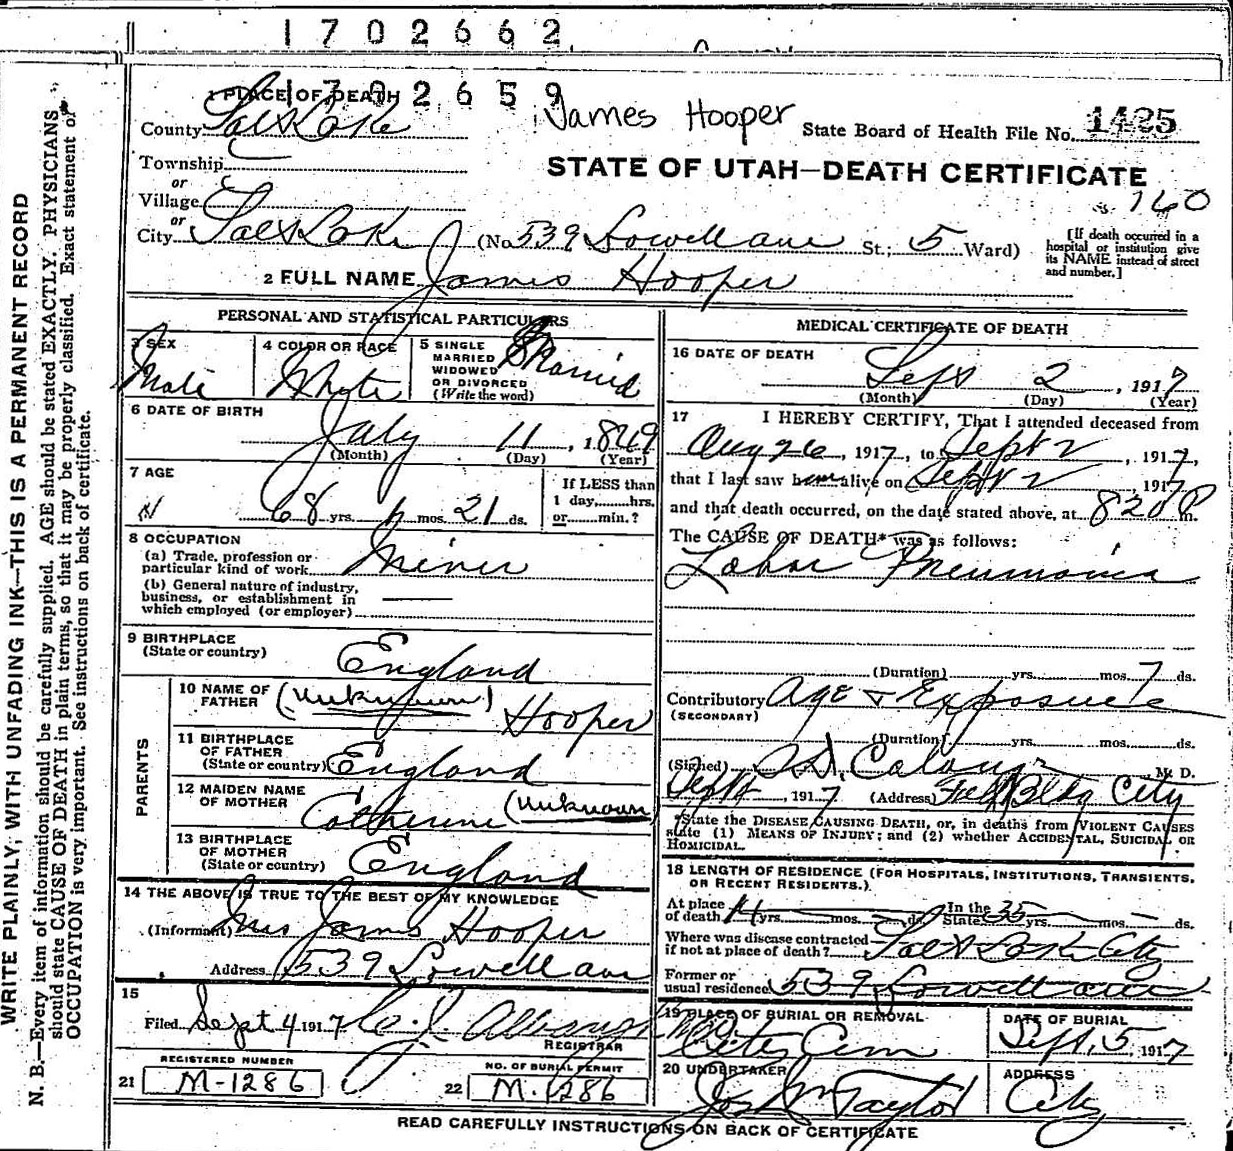 1702662
1702659
1 PLACE OF DEATH
James Hooper
County Salt Lake
State Board of Health File No. 1425
Township
STATE OF UTAH—DEATH CERTIFICATE
or
Village
160
or
City Salt Lake (No. 539 Lowell ave St.; 5 Ward)
[If death occurred in a hospital or institution give its NAME instead of street and number.]
2 FULL NAME James Hooper
PERSONAL AND STATISTICAL PARTICULARS
3 SEX Male
4 COLOR OR RACE White
5 SINGLE MARRIED WIDOWED OR DIVORCED (Write the word) Married
6 DATE OF BIRTH
July 11, 1849
(Month) (Day) (Year)
7 AGE
68 yrs. mos. 21 ds.
If LESS than 1 day,......hrs. or......min.?
8 OCCUPATION
(a) Trade, profession or particular kind of work Miner
(b) General nature of industry, business, or establishment in which employed (or employer)
9 BIRTHPLACE
(State or country) England
PARENTS
10 NAME OF FATHER (unknown) Hooper
11 BIRTHPLACE OF FATHER (State or country) England
12 MAIDEN NAME OF MOTHER Catherine (unknown)
13 BIRTHPLACE OF MOTHER (State or country) England
14 THE ABOVE IS TRUE TO THE BEST OF MY KNOWLEDGE
(Informant) Mrs James Hooper
Address 539 Lowell ave
15
Filed Sept 4 1917
REGISTRAR
REGISTERED NUMBER
21 M-1286
NO. OF BURIAL PERMIT
22 M-1286
MEDICAL CERTIFICATE OF DEATH
16 DATE OF DEATH
Sept 2, 1917
(Month) (Day) (Year)
17 I HEREBY CERTIFY, That I attended deceased from
Aug 26, 1917, to Sept 2, 1917,
that I last saw him alive on Sept 2, 1917
and that death occurred, on the date stated above, at 820 P m.
The CAUSE OF DEATH* was as follows:
Lobar Pneumonia
(Duration) yrs. mos. 7 ds.
Contributory Age & Exposure
(SECONDARY)
(Duration) yrs. mos. ds.
(Signed) M. D.
Sept, 1917 (Address) Bldg City
*State the DISEASE CAUSING DEATH, or, in deaths from VIOLENT CAUSES
state (1) MEANS OF INJURY; and (2) whether ACCIDENTAL, SUICIDAL OR
HOMICIDAL.
18 LENGTH OF RESIDENCE (FOR HOSPITALS, INSTITUTIONS, TRANSIENTS, OR RECENT RESIDENTS.)
At place of death 14 yrs. mos. ds. In the State 35 yrs. mos. ds.
Where was disease contracted if not at place of death? Salt Lake City
Former or usual residence 539 Lowell ave
19 PLACE OF BURIAL OR REMOVAL City Cem
DATE OF BURIAL Sept, 5, 1917
20 UNDERTAKER Jos Wm Taylor
ADDRESS City
READ CAREFULLY INSTRUCTIONS ON BACK OF CERTIFICATE
WRITE PLAINLY, WITH UNFADING INK—THIS IS A PERMANENT RECORD
N. B.—Every item of information should be carefully supplied. AGE should be stated EXACTLY. PHYSICIANS
should state CAUSE OF DEATH in plain terms, so that it may be properly classified. Exact statement of
OCCUPATION is very important. See instructions on back of certificate.